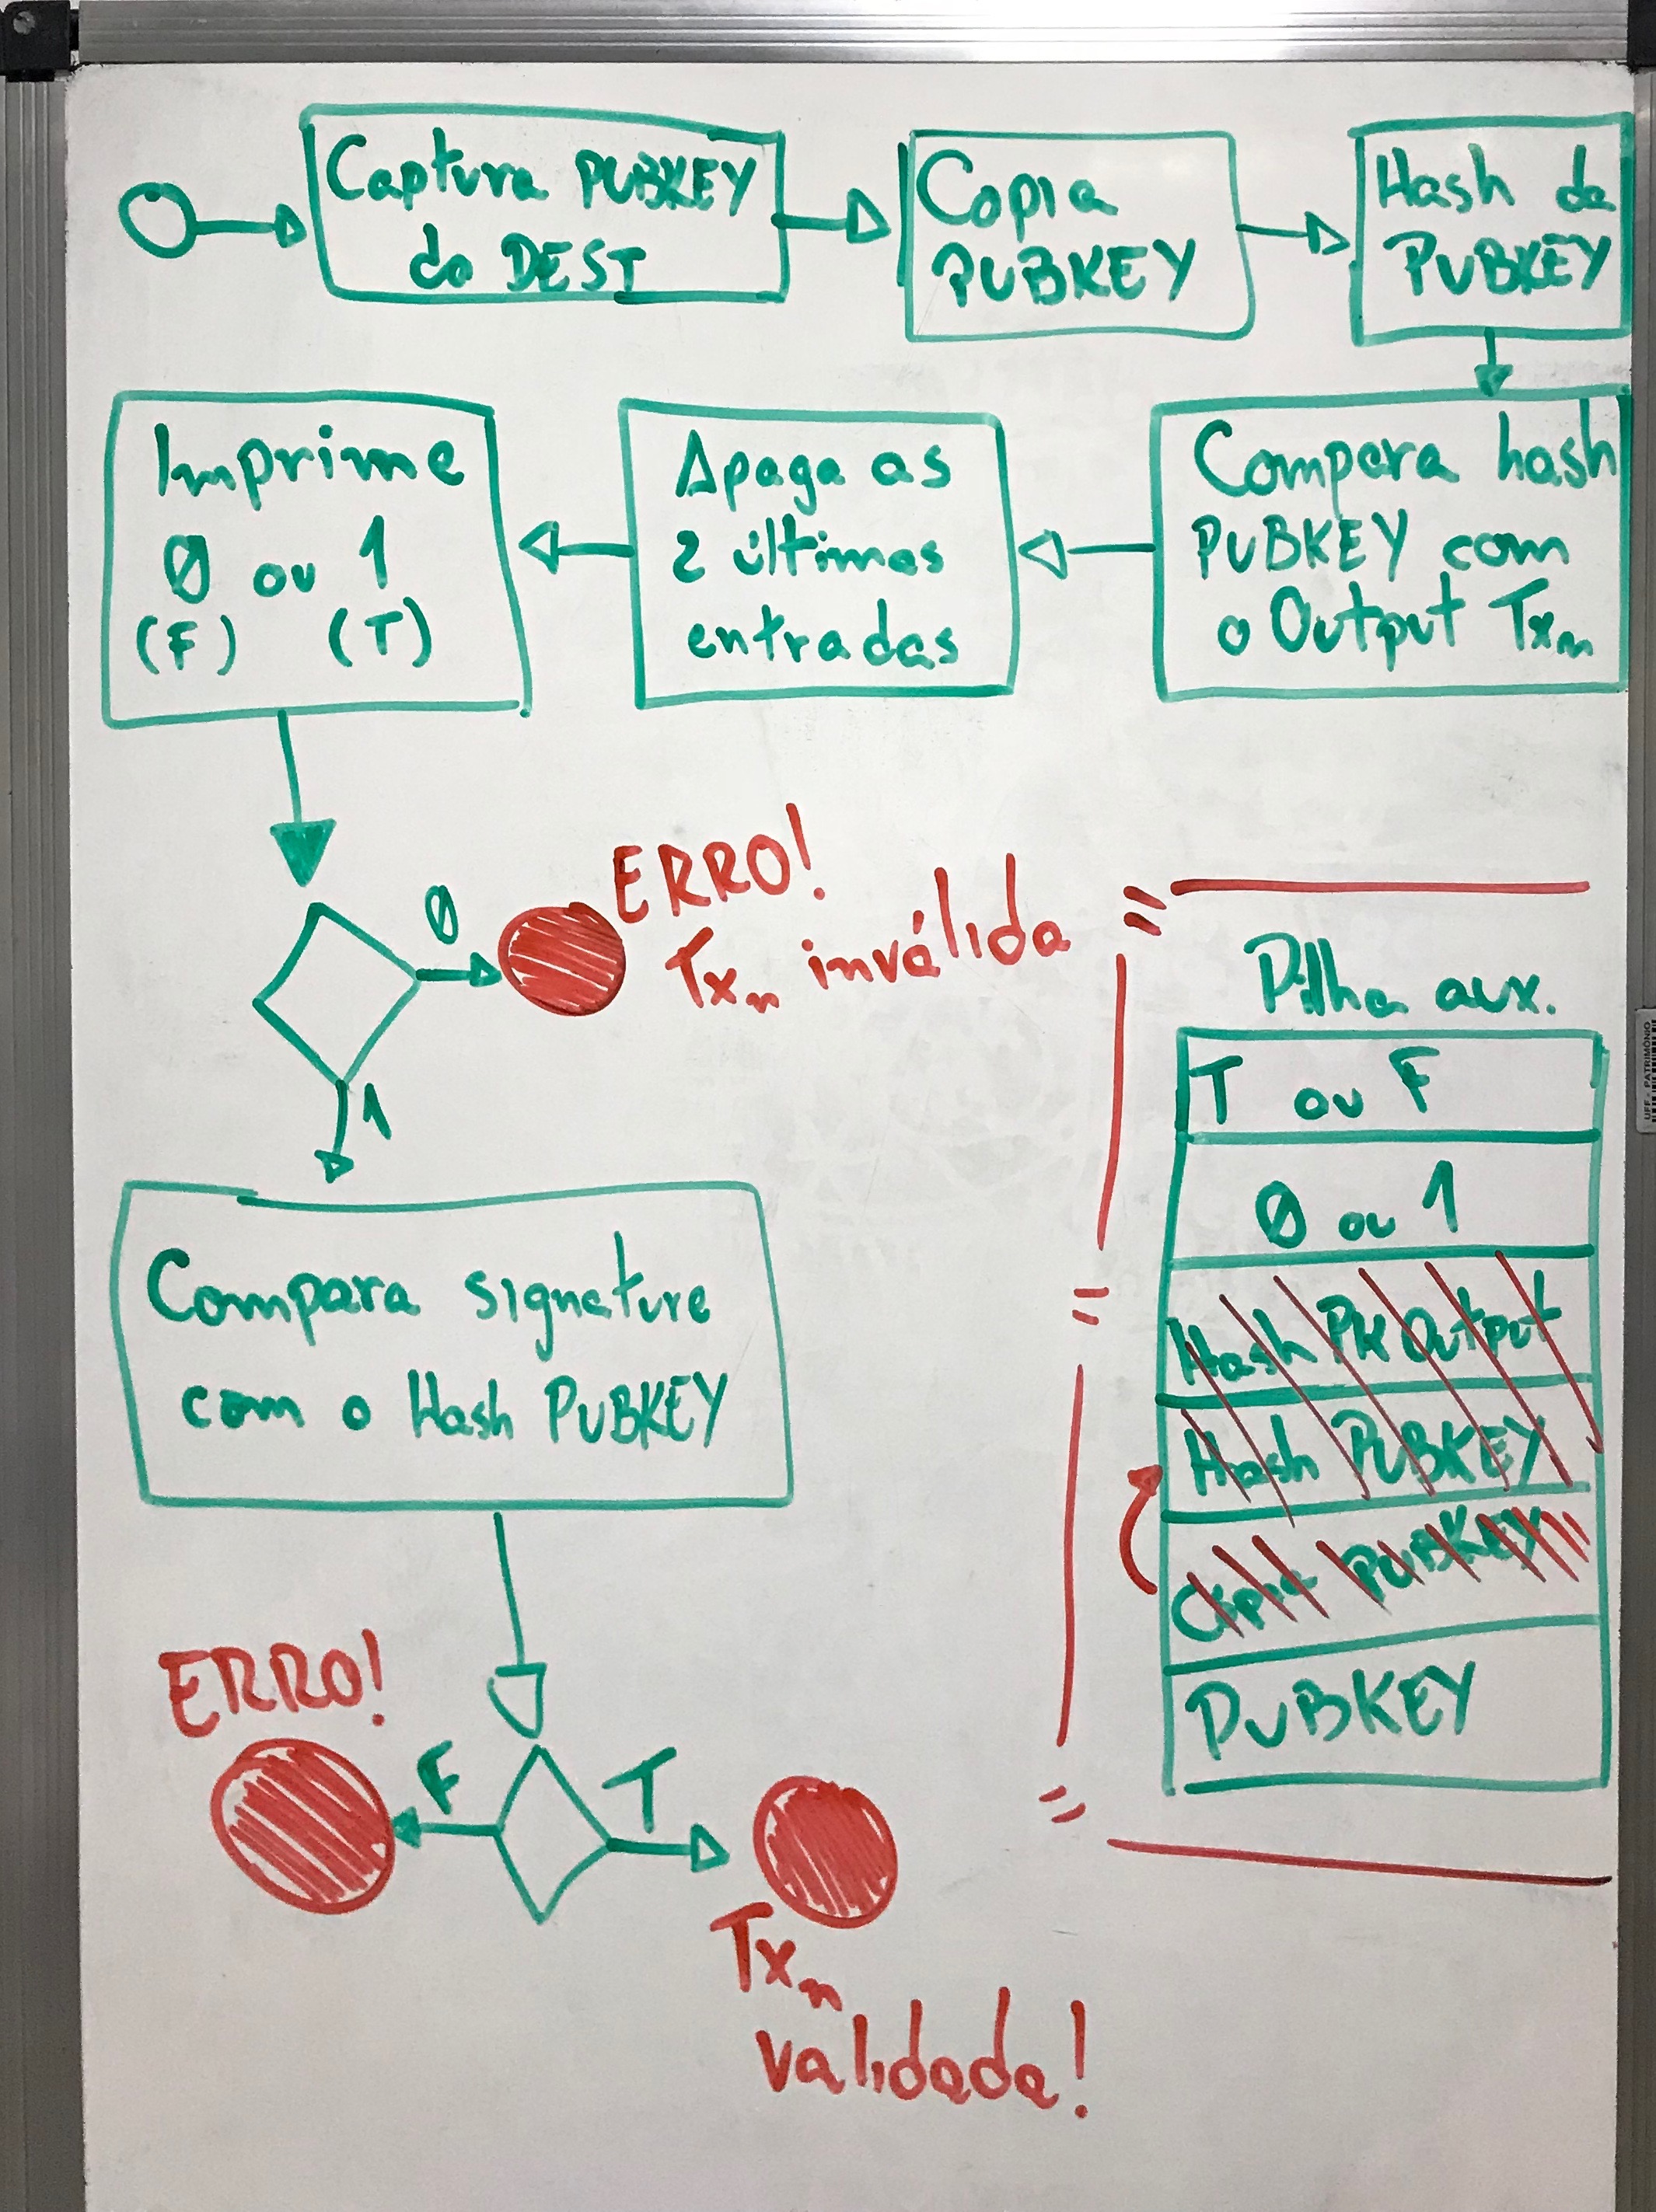 Captura PUBKEY
do DEST
Copia
PUBKEY
Hash da
PUBKEY
Compara hash
PUBKEY com
o Output Txn
Apaga as
2 últimas
entradas
Imprime
0 ou 1
(F) (T)
0
ERRO!
Txn inválida
1
Compara signature
com o Hash PUBKEY
F
ERRO!
T
Txn
validada!
Pilha aux.
T ou F
0 ou 1
Hash PK Output
Hash PUBKEY
Copia PUBKEY
PUBKEY
UFF - PATRIMÔNIO